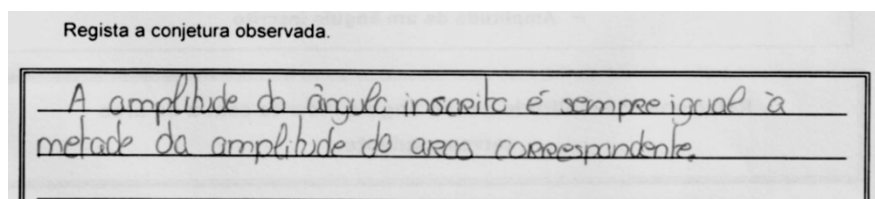 Regista a conjetura observada.
A amplitude do ângulo inscrito é sempre igual à
metade da amplitude do arco correspondente.